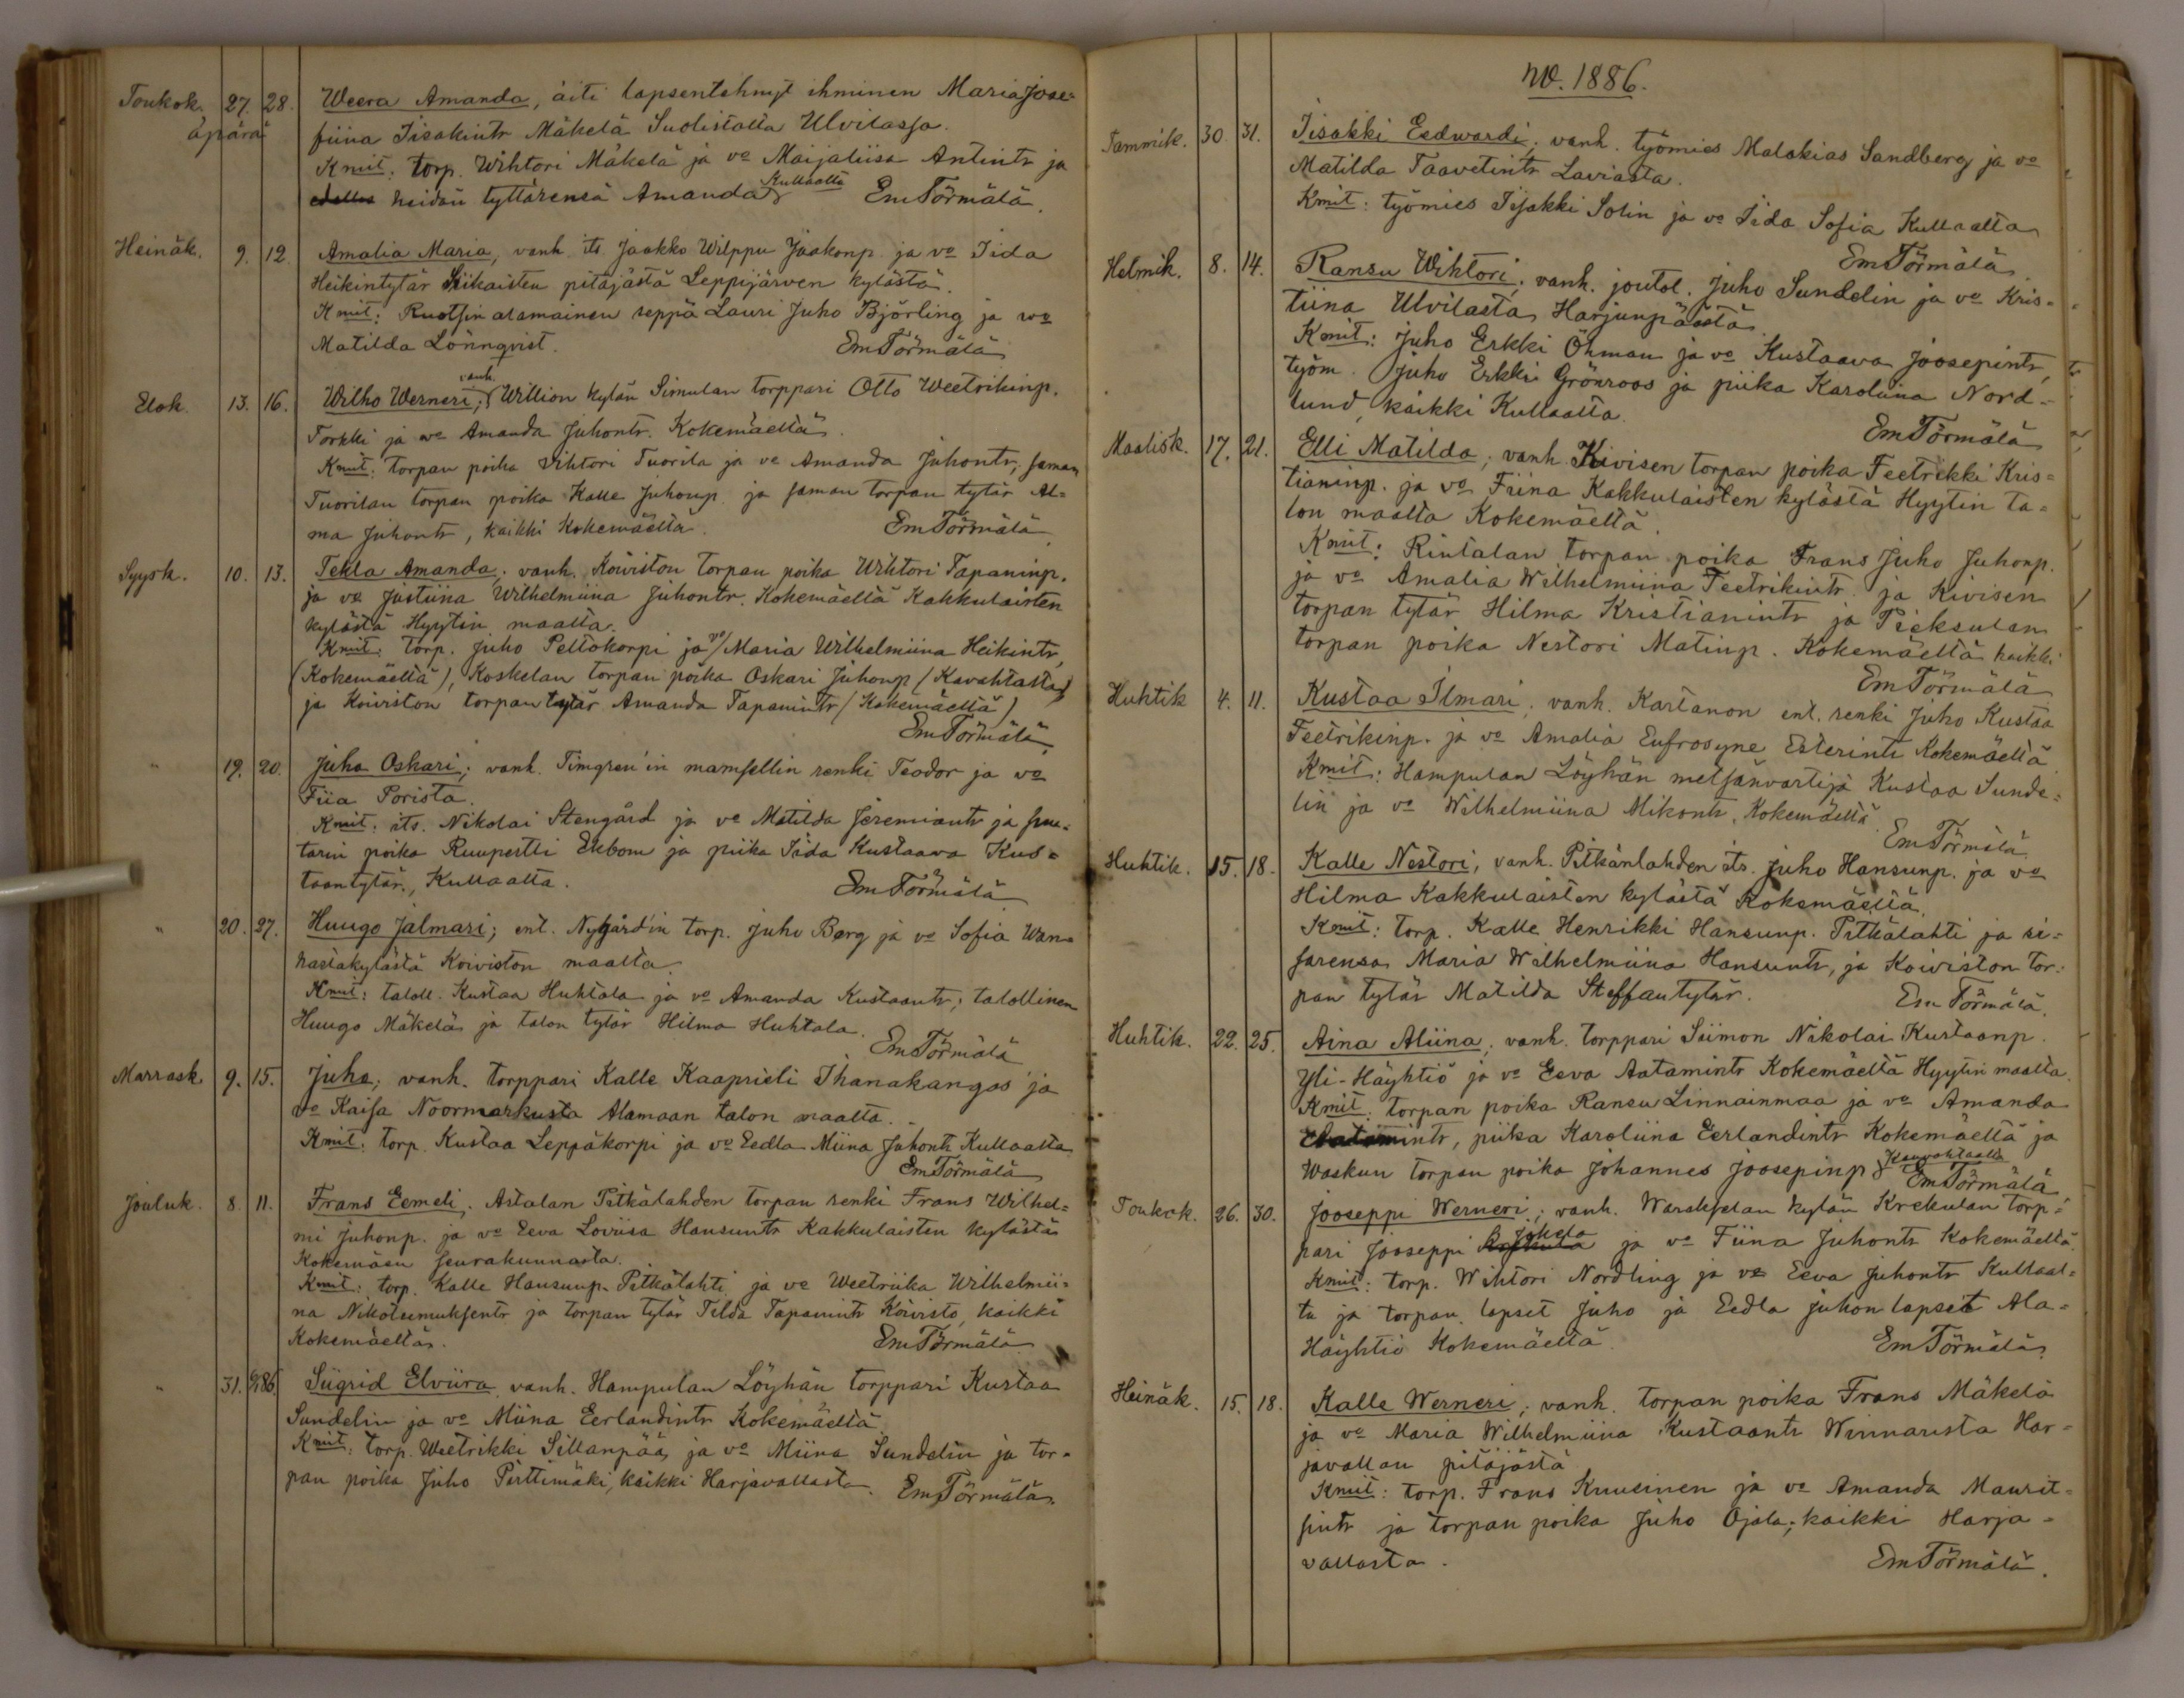 Toukok. 27. 28. Weera Amanda, äiti lapsentehnyt ihminen Maria Jose=
äpärä fiina Iisakintr Mäkelä Suolistalta Ulvilassa.
Kmit: torp. Wihtori Mäkelä ja vo Maijaliisa Antintr ja
heidän tyttärensä Amanda Kullaalta Em Törmälä.
Heinäk. 9. 12. Amalia Maria, vanh. its. Jaakko Wilppu Jaakonp. ja vo Iida
Heikintytär Siikaisten pitäjästä Leppijärven kylästä.
Kmit: Ruotsin alamainen seppä Lauri Juho Björling ja wo
Matilda Lönnqvist. Em Törmälä
Elok. 13. 16. Wilho Werneri; vanh. Willion kylän Simulan torppari Otto Weetrikinp.
Torkki ja wo Amanda Juhontr. Kokemäeltä.
Kmit: torpan poika Vihtori Tuorila ja vo Amanda Juhontr, saman
Tuorilan torpan poika Kalle Juhonp. ja saman torpan tytär Al=
ma Juhontr, kaikki Kokemäeltä. Em Törmälä
Syysk. 10. 13. Tekla Amanda; vanh. Koiviston torpan poika Wihtori Tapaninp.
ja vo Justiina Wilhelmiina Juhontr. Kokemäeltä Kakkulaisten
kylästä Hyytin maalta.
Kmit: torp. Juho Peltokorpi ja vo/ Maria Wilhelmiina Heikintr,
(Kokemäeltä), Koskelan torpan poika Oskari Juhonp (Kavahtasta)
ja Koiviston torpan tytär Amanda Tapanintr (Kokemäeltä)
Em Törmälä
" 19. 20. Juha Oskari; vanh. Timgren'in mamsellin renki Teodor ja vo
Fiia Porista.
Kmit: its. Nikolai Stengård ja vo Matilda Jeremiantr ja suu=
tarin poika Ruupertti Ekbom ja piika Iida Kustaava Kus=
taantytär, Kullaalta. Em Törmälä
" 20. 27. Huugo Jalmari; ent. Nygård'in torp. Juho Berg ja vo Sofia Wan=
hastakylästä Koiviston maalta.
Kmit: taloll. Kustaa Huhtala ja vo Amanda Kustaantr; talollinen
Huugo Mäkelä ja talon tytär Hilma Huhtala.
Em Törmälä
Marrask. 9. 15. Juha; vanh. torppari Kalle Kaaprieli Ihanakangas ja
vo Kaisa Noormarkusta Alamaan talon maalta.
Kmit: torp. Kustaa Leppäkorpi ja vo Eedla Miina Juhontr Kullaalta
Em Törmälä
Jouluk. 8. 11. Frans Eemeli; Astalan Pitkälahden torpan renki Frans Wilhel=
mi Juhonp. ja vo Eeva Loviisa Hansuntr Kakkulaisten kylästä
Kokemäen seurakunnasta.
Kmit: torp. Kalle Hansunp. Pitkälahti ja vo Weetriika Wilhelmii=
na Nikoteemuksentr ja torpan tytär Tilda Tapanintr Koivisto, kaikki
Kokemäeltä. Em Törmälä
" 31. 6/1 86. Siigrid Elviira, vanh. Hampulan Löyhän torppari Kustaa
Sundelin ja vo Miina Eerlandintr Kokemäeltä.
Kmit: torp. Weetrikki Sillanpää, ja vo Miina Sundelin ja tor=
pan poika Juho Pirttimäki, kaikki Harjavallasta. Em Törmälä.
W. 1886.
Tammik. 30. 31. Iisakki Eedwardi; vanh. työmies Malakias Sandberg ja vo
Matilda Taavetintr Laviasta.
Kmit: työmies Iisakki Solin ja vo Iida Sofia Kullaalta
Em Törmälä
Helmik. 8. 14. Ransu Wihtori; vanh. joutol. Juho Sundelin ja vo Kris=
tiina Ulvilasta Harjunpäästä.
Kmit: Juho Erkki Öhman ja vo Kustaava Joosepintr,
työm. Juho Erkki Grönroos ja piika Karoliina Nord=
lund, kaikki Kullaalta. Em Törmälä
Maalisk. 17. 21. Elli Matilda; vanh. Kivisen torpan poika Feetrikki Kris=
tianinp. ja vo Fiina Kakkulaisten kylästä Hyytin ta=
lon maalta Kokemäeltä.
Kmit: Rintalan torpan poika Frans Juho Juhonp.
ja vo Amalia Wilhelmiina Feetrikintr. ja Kivisen
torpan tytär Hilma Kristianintr ja Pieksulan
torpan poika Nestori Matinp. Kokemäeltä kaikki
Em Törmälä
Huhtik 4. 11. Kustaa Ilmari; vanh. Kartanon ent. renki Juho Kustaa
Feetrikinp. ja vo Amalia Eufrosyne Esterintr Kokemäeltä
Kmit: Hampulan Löyhän metsänvartija Kustaa Sunde=
lin ja vo Wilhelmiina Mikontr. Kokemäeltä.
Em Törmälä
Huhtik. 15. 18. Kalle Nestori; vanh. Pitkänlahden its. Juho Hansunp. ja vo
Hilma Kakkulaisten kylästä Kokemäeltä.
Kmit: torp. Kalle Henrikki Hansunp. Pitkälahti ja si=
sarensa Maria Wilhelmiina Hansuntr, ja Koiviston tor=
pan tytär Matilda Steffantytär. Em Törmälä.
Huhtik. 22. 25. Aina Aliina; vanh. torppari Siimon Nikolai Kustaanp.
Yli-Häyhtiö ja vo Eeva Aatamintr Kokemäeltä Hyytin maalta.
Kmit: torpan poika Ransu Linnainmaa ja vo Amanda
mintr, piika Karoliina Eerlandintr Kokemäeltä ja
Waskun torpan poika Johannes Joosepinp Kauvahtaalta Em Törmälä
Toukok. 26. 30. Jooseppi Werneri; vanh. Warakselan kylän Krekulan torp=
pari Jooseppi Jokela ja vo Fiina Juhontr Kokemäeltä.
Kmit: torp. Wihtori Nordling ja vo Eeva Juhontr Kullaal=
ta ja torpan lapset Juho ja Eedla Juhon lapset Ala=
Häyhtiö Kokemäeltä. Em Törmälä
Heinäk. 15. 18. Kalle Werneri; vanh. torpan poika Frans Mäkelä
ja vo Maria Wilhelmiina Kustaantr Winnarista Har=
javallan pitäjästä
Kmit: torp. Frans Knuusinen ja vo Amanda Maurit=
sintr ja torpan poika Juho Ojala; kaikki Harja=
vallasta. Em Törmälä.